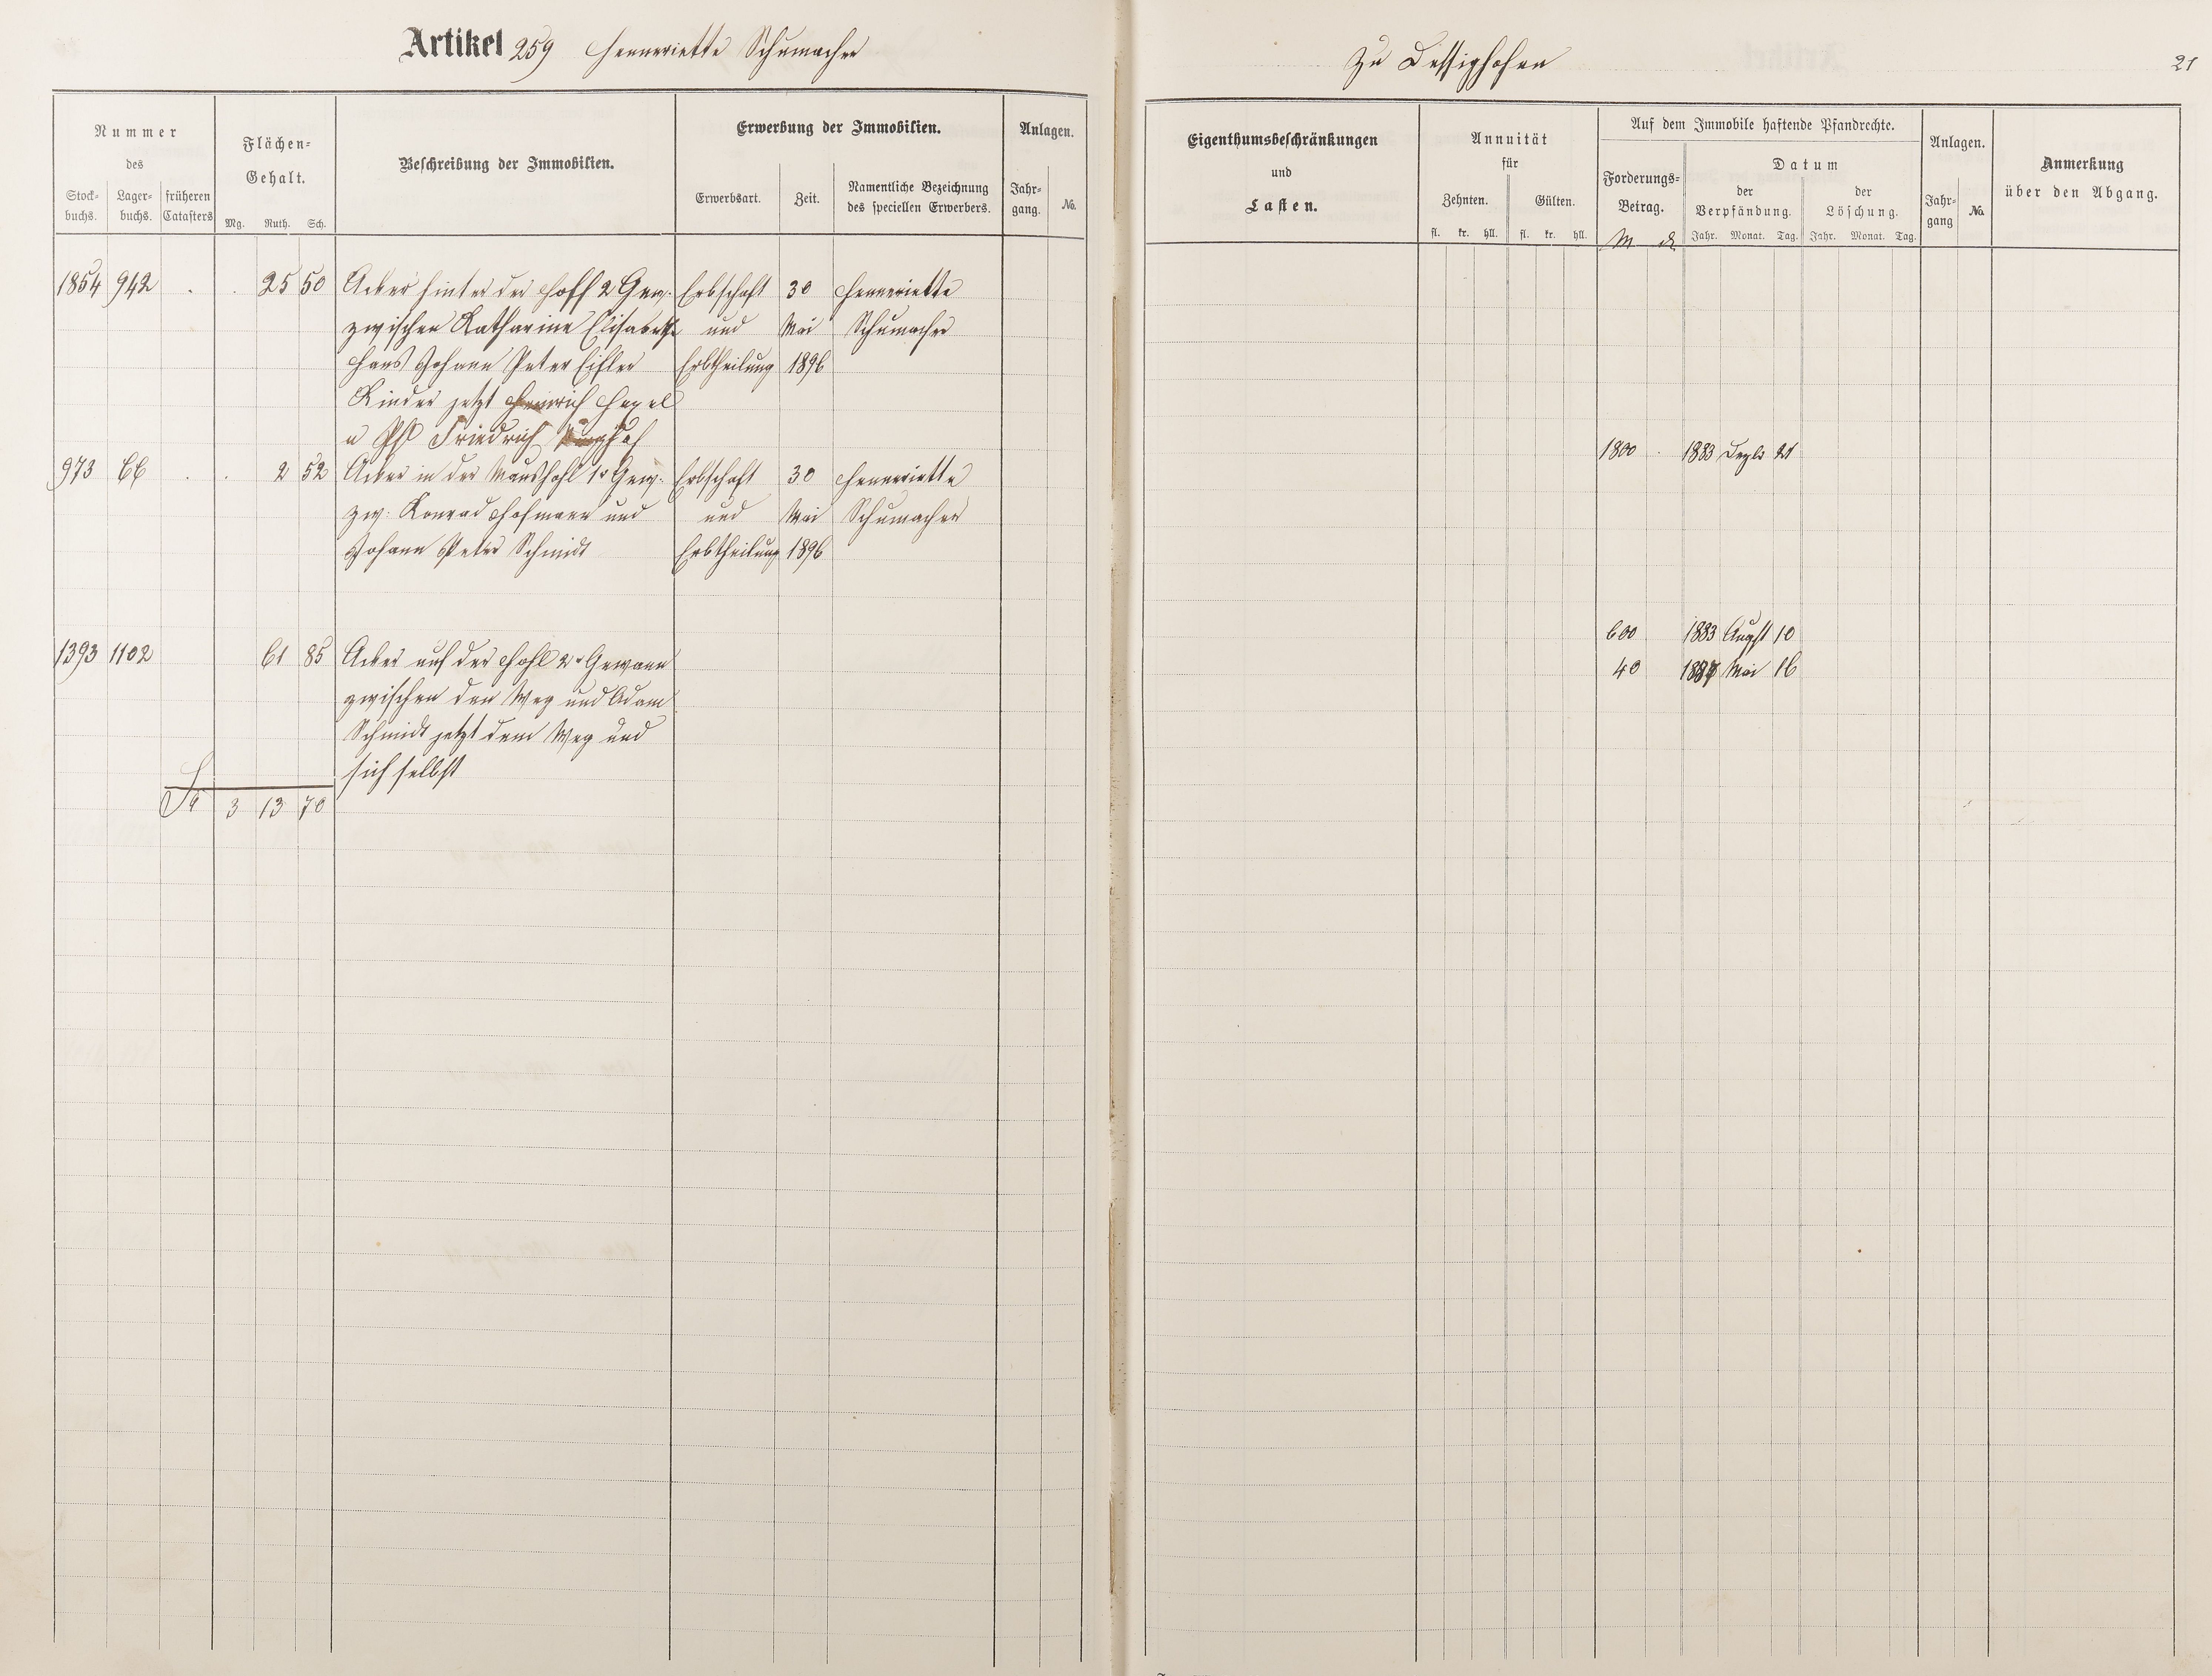 Artikel 259 Henneriette Schumacher
zu Dessighofen
21
Nummer
des
Stock-
buchs.
Lager-
buchs.
früheren
Catasters
Flächen-
Gehalt.
Mg. Ruth. Sch.
Beschreibung der Immobilien.
Erwerbung der Immobilien.
Erwerbsart.
Zeit.
Namentliche Bezeichnung
des speciellen Erwerbers.
Anlagen.
Jahr-
gang.
No.
Eigenthumsbeschränkungen
und
Lasten.
Annuität
für
Zehnten. Gülten.
fl. kr. hll. fl. kr. hll.
Auf dem Immobile haftende Pfandrechte.
Forderungs-
Betrag.
M
Datum
der
Verpfändung.
der
Löschung.
Jahr. Monat. Tag. Jahr. Monat. Tag.
Anlagen.
Jahr-
gang
No.
Anmerkung
über den Abgang.
1854 942 . . 25 50 Acker hinter der Hoff 2 Gew. Erbschaft 30 Henneriette
zwischen Katharine Elisabethe und Mai Schumacher
Hans Johann Peter Eisler Erbtheilung 1896
Kinder jetzt Heinrich
u Phil Friedrich
1800 . 1883 Dezbr 21
973 66 . . 2 52 Acker in der Maushohl 1r Gew. Erbschaft 30 Henneriette
zw. Konrad Hofmann und und Mai Schumacher
Johann Peter Schmidt Erbtheilung 1896
600 1883 Augst 10
1393 1102 61 85 Acker auf der Hohl 2r Gewann
40 Mai 16
zwischen den Weg und Adam
Schmidt jetzt dem Weg und
sich selbst
Sa 3 13 70